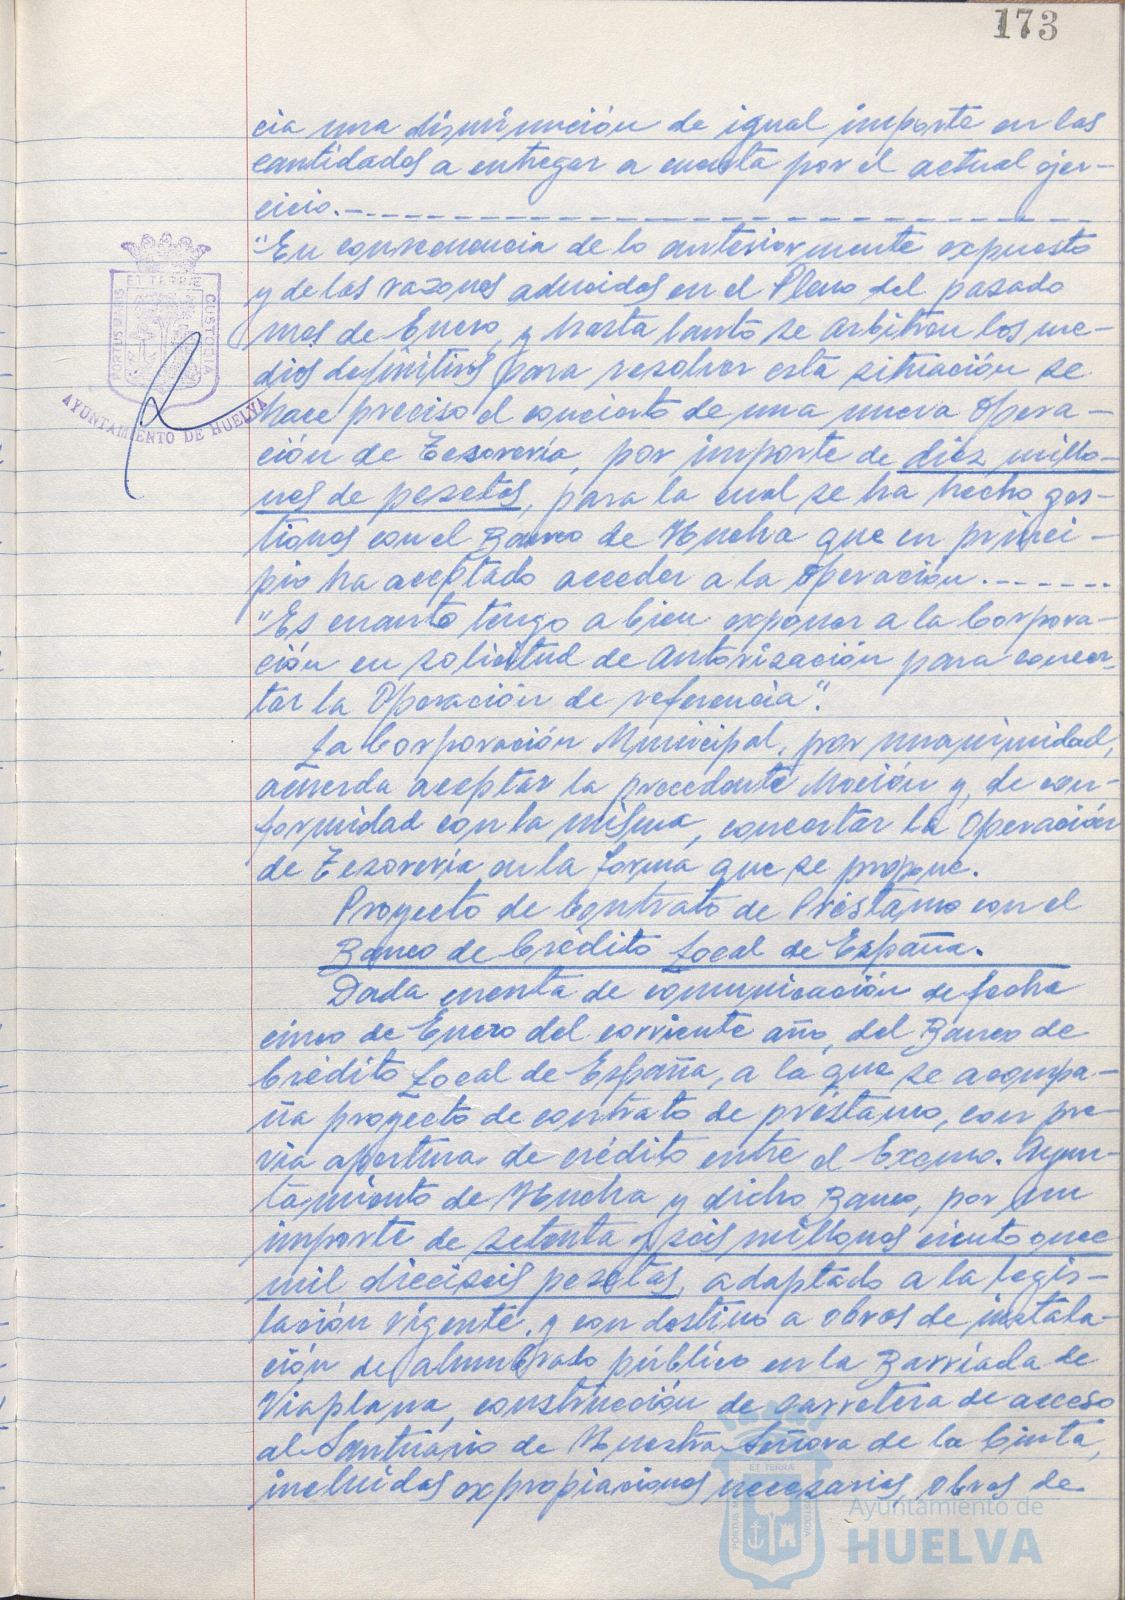 173
cia una disminución de igual importe en las
cantidades a entregar a cuenta por el actual ejer-
cicio.-
"En consecuencia de lo anteriormente expuesto
y de las razones aducidas en el Pleno del pasado
mes de Enero, y hasta tanto se arbitren los me-
dios definitivos para resolver esta situación se
hace preciso el concierto de una nueva Opera-
ción de Tesorería, por importe de diez millo-
nes de pesetas, para la cual se ha hecho ges-
tiones con el Banco de Huelva que en princi-
pio ha aceptado acceder a la operación.-
"Es cuanto tengo a bien exponer a la Corpora-
ción en solicitud de autorización para concer-
tar la Operación de referencia".
La Corporación Municipal, por unanimidad,
acuerda aceptar la precedente Moción y, de con-
formidad con la misma, concertar la Operación
de Tesorería en la forma que se propone.
Proyecto de Contrato de Préstamo con el
Banco de Crédito Local de España.
Dada cuenta de comunicación de fecha
cinco de Enero del corriente año, del Banco de
Crédito Local de España, a la que se acompa-
ña proyecto de contrato de préstamo, con pre-
via apertura de crédito entre el Excmo. Ayun-
tamiento de Huelva y dicho Banco, por un
importe de setenta y seis millones ciento once
mil dieciseis pesetas, adaptado a la legis-
lación vigente, y con destino a obras de instala-
ción de alumbrado público en la Barriada de
Viaplana, construcción de carretera de acceso
al Santuario de Nuestra Señora de la Cinta,
incluidas expropiaciones necesarias, obras de
PORTUS MARIS ET TERRÆ CUSTODIA
AYUNTAMIENTO DE HUELVA
Ayuntamiento de
HUELVA